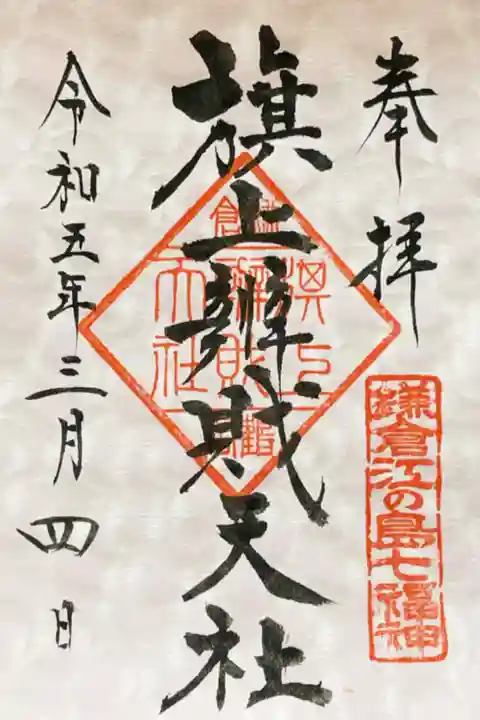 奉拝
鎌倉江の島七福神
旗上辨財天社
令和五年三月四日